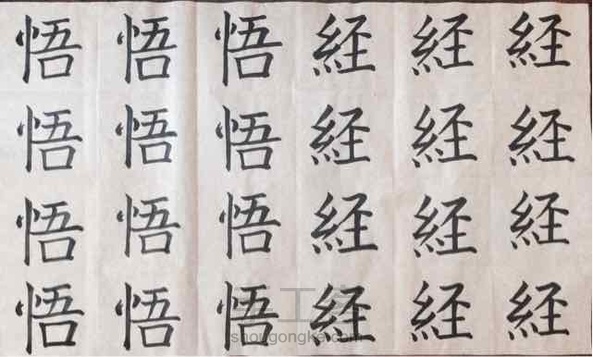 悟悟悟経経経
悟悟悟経経経
悟悟悟経経経
悟悟悟経経経
shougongke.com